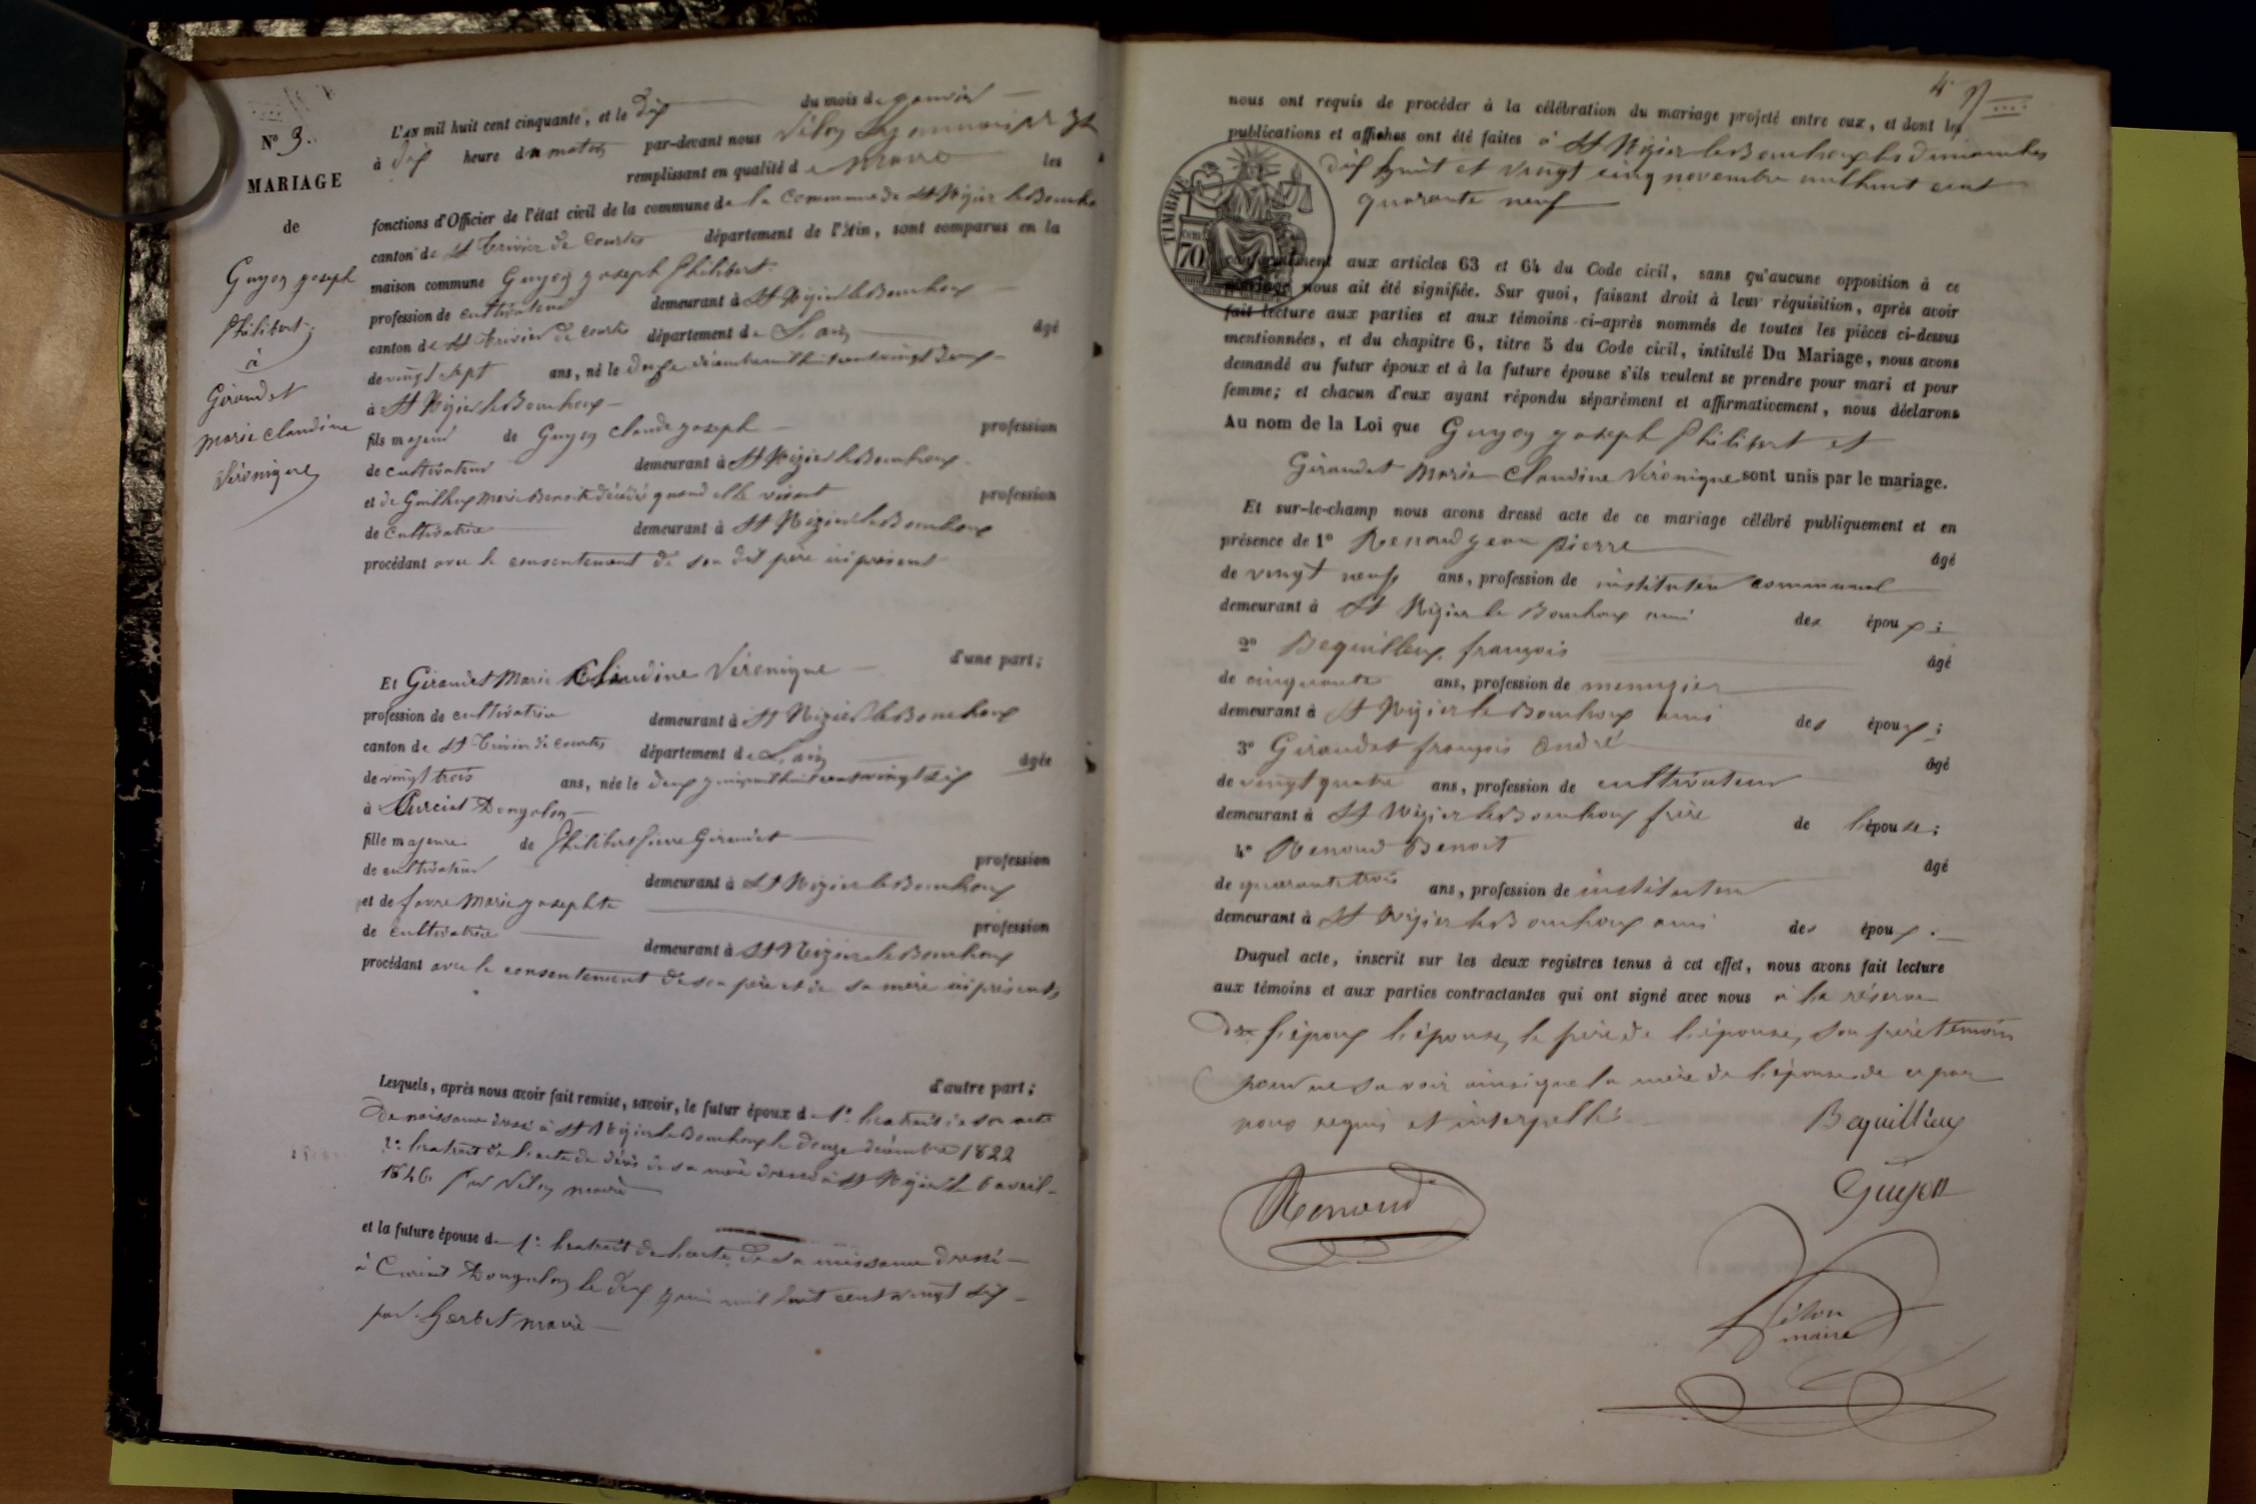 N° 3.
MARIAGE
de
Guyon joseph
philibert
à
Giraudet
marie claudine
véronique
L'AN mil huit cent cinquante, et le dix du mois de janvier
à dix heure du matin par-devant nous Vélon
remplissant en qualité de maire les
fonctions d'Officier de l'état civil de la commune de la Commune de St Nizier le Bouchoux
canton de St Trivier de Courtes département de l'Ain, sont comparus en la
maison commune Guyon joseph Philibert
profession de cultivateur demeurant à St Nizier le Bouchoux
canton de St Trivier de courtes département de L'ain âgé
de vingt sept ans, né le douze décembre mil huit cent vingt deux
à St Nizier le Bouchoux
fils majeur de Guyon Claude joseph profession
de cultivateur demeurant à St Nizier le Bouchoux
et de marie Benoite décédée quand elle vivait profession
de cultivatrice demeurant à St Nizier le Bouchoux
procédant avec le consentement de son dit père ici présent
d'une part;
Et Giraudet Marie Claudine Véronique
profession de cultivatrice demeurant à St Nizier le Bouchoux
canton de St Trivier de courtes département de L'ain âgée
de vingt trois ans, née le deux juin mil huit cent vingt six
à Curciat Dongalon
fille majeure de Philibert pierre Giraudet profession
de cultivateur demeurant à St Nizier le Bouchoux
et de favre Marie josephte profession
de cultivatrice demeurant à St Nizier le Bouchoux
procédant avec le consentement de son père et de sa mère ici présents
d'autre part;
Lesquels, après nous avoir fait remise, savoir, le futur époux de 1° l'extrait de son acte
de naissance dressé à St Nizier le Bouchoux le douze décembre 1822
2° l'extrait de l'acte de décès de sa mère dressé à St Nizier le 6 avril
1846 par Vélon maire
et la future épouse de 1° l'extrait de l'acte de sa naissance dressé
à Curciat Dongalon le deux juin mil huit cent vingt six
par Gerbet maire
4
nous ont requis de procéder à la célébration du mariage projeté entre eux, et dont les
publications et affiches ont été faites à St Nizier le Bouchoux les dimanches
dix huit et vingt cinq novembre mil huit cent
quarante neuf
TIMBRE
70
conformément aux articles 63 et 64 du Code civil, sans qu'aucune opposition à ce
mariage nous ait été signifiée. Sur quoi, faisant droit à leur réquisition, après avoir
fait lecture aux parties et aux témoins ci-après nommés de toutes les pièces ci-dessus
mentionnées, et du chapitre 6, titre 5 du Code civil, intitulé Du Mariage, nous avons
demandé au futur époux et à la future épouse s'ils veulent se prendre pour mari et pour
femme; et chacun d'eux ayant répondu séparément et affirmativement, nous déclarons
Au nom de la Loi que Guyon joseph Philibert et
Giraudet Marie Claudine Véronique sont unis par le mariage.
Et sur-le-champ nous avons dressé acte de ce mariage célébré publiquement et en
présence de 1° Renoud jean pierre âgé
de vingt neuf ans, profession de instituteur communal
demeurant à St Nizier le Bouchoux ami des époux;
2° Bequilleux françois âgé
de cinquante ans, profession de menuzier
demeurant à St Nizier le Bouchoux ami des époux;
3° Giraudet françois andré âgé
de vingt quatre ans, profession de cultivateur
demeurant à St Nizier le Bouchoux frère de l'épouse;
4° Renoud Benoit âgé
de quarante trois ans, profession de instituteur
demeurant à St Nizier le Bouchoux ami des époux.
Duquel acte, inscrit sur les deux registres tenus à cet effet, nous avons fait lecture
aux témoins et aux parties contractantes qui ont signé avec nous à la réserve
de l'époux l'épouse, le père de l'épouse, son frère témoin
pour ne savoir ainsi que la mère de l'épouse de ce par
nous requis et interpellés
Bequilleux
Guyon
Renoud
Vélon
maire